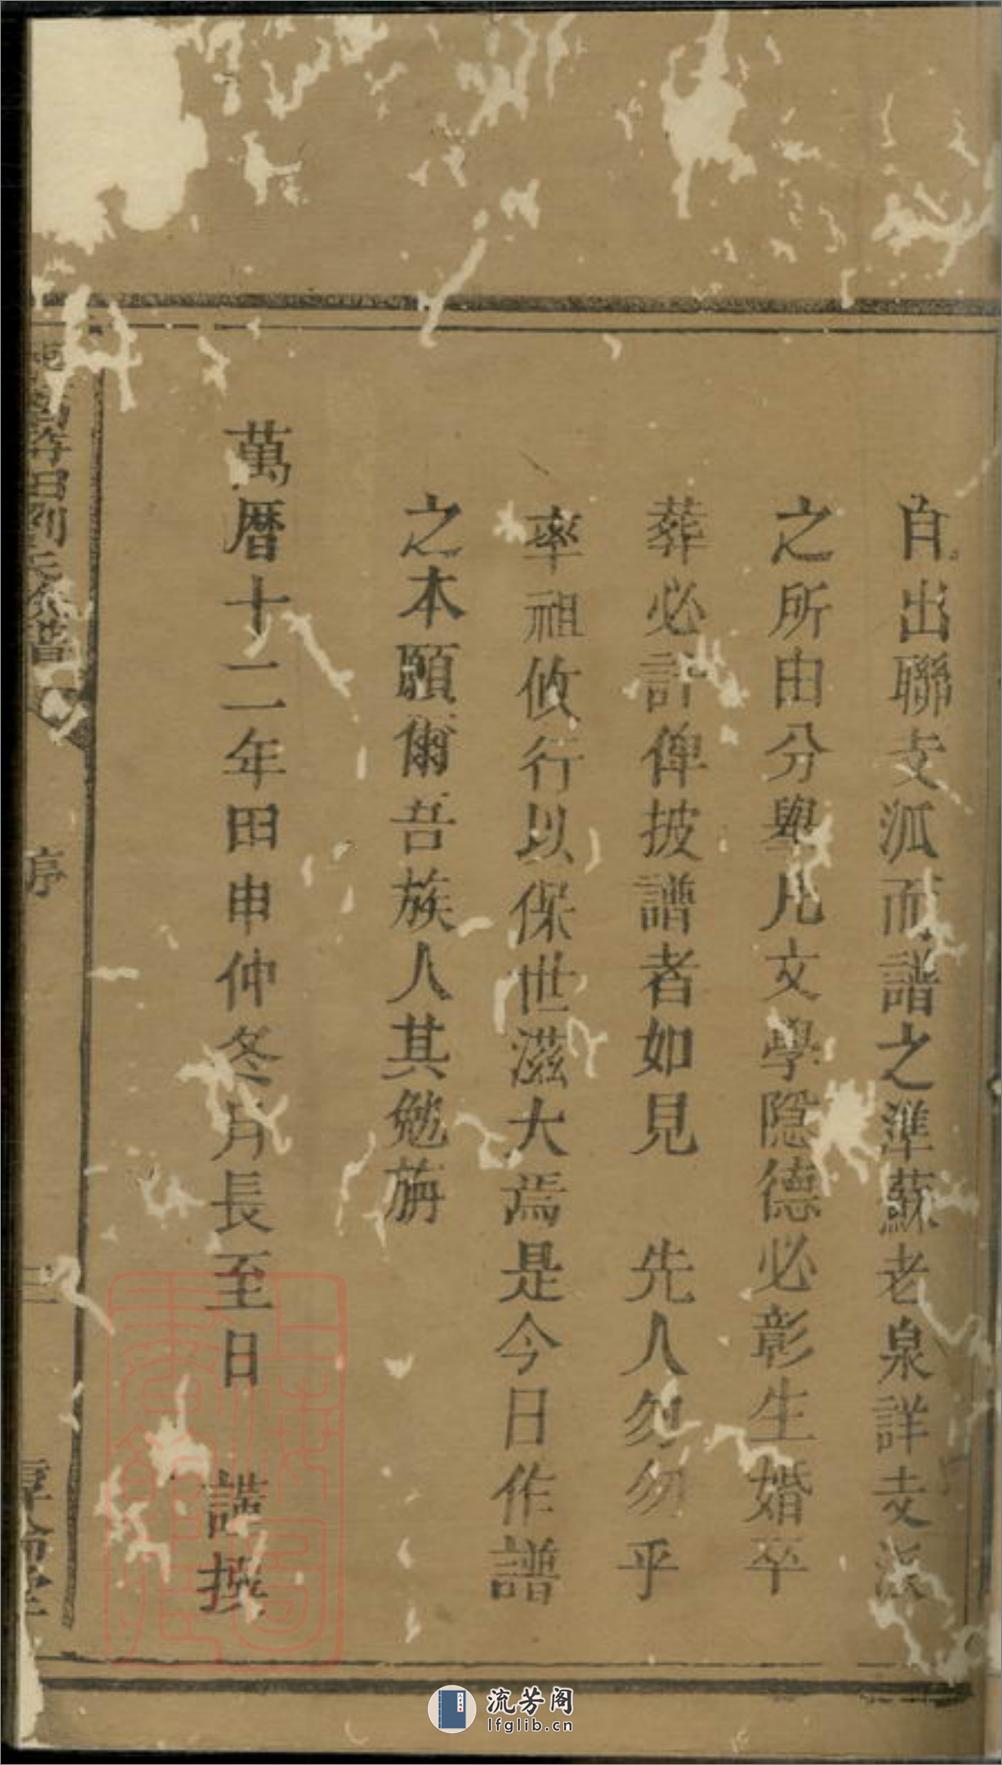 自出聯支泒而譜之準蘇老泉詳支派
之所由分舉凡文學隱德必彰生婚卒
葬必詳俾披譜者如見　先人勿勿乎
率祖攸行以保世滋大焉是今日作譜
之本願爾吾族人其勉旃
萬曆十二年田申仲冬月長至日　謹撰
田劉氏宗譜
序
三
上海圖書館藏
流芳阁
lfglib.cn